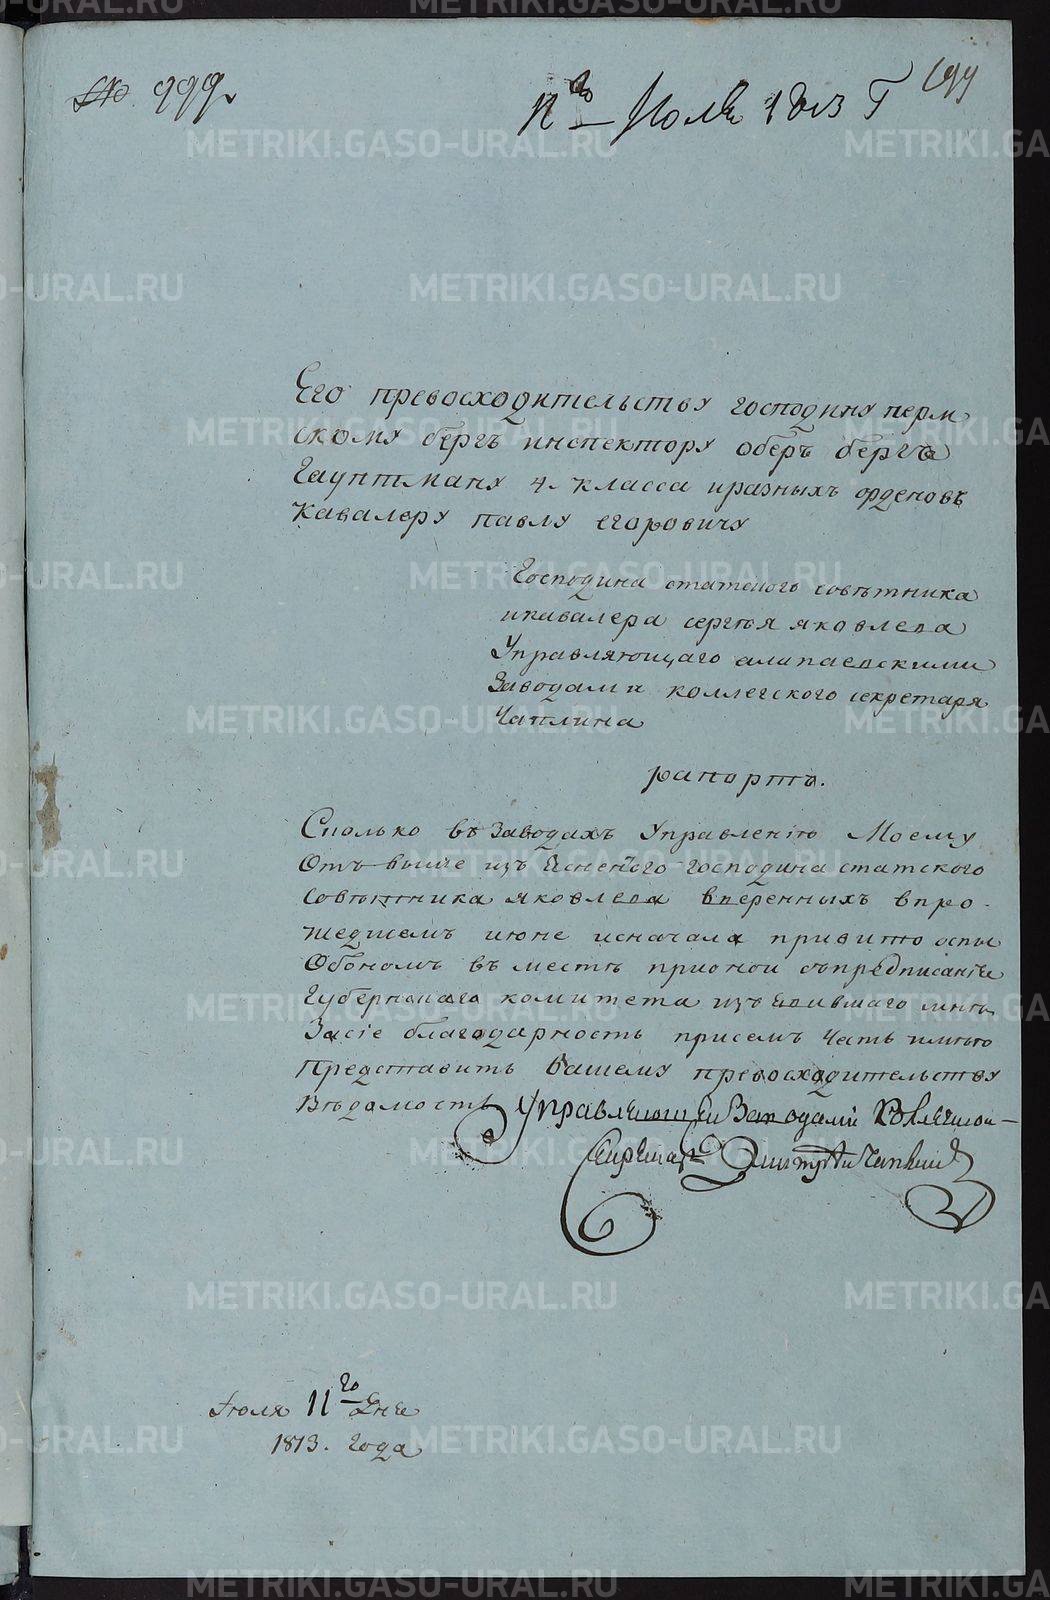 № 999.
199
17го Июля 1813 Г
Его превосходительству господину перм
скому бергъ инспектору оберъ бергъ
Гауптману 4. класса иразныхъ орденовъ
кавалеру павлу егоровичу
Господина статского совѣтника
икавалера сергѣя яковлева
Управляющаго алапаевскими
Заводами коллегского секретаря
Чаплина
рапортъ.
Сколько въ Заводахъ Управлению Моему
Отъ выше изъ Ясненого господина статского
Совѣтника яковлева ввѣренныхъ впро-
шедшемъ июне исначала привито оспы
Обономъ въ месть прионои съпредписание
Губернскаго комитета изъ Явившаго мнѣ
Засіе благодарность присемъ Честь имѣю
Представить Вашему превосходительству
Вѣдомость Управляющеи Заводами Коллегскои
Секретарь Дмитреи Чаплинъ
Июля 11го Дня
1813. Года
METRIKI.GASO-URAL.RU